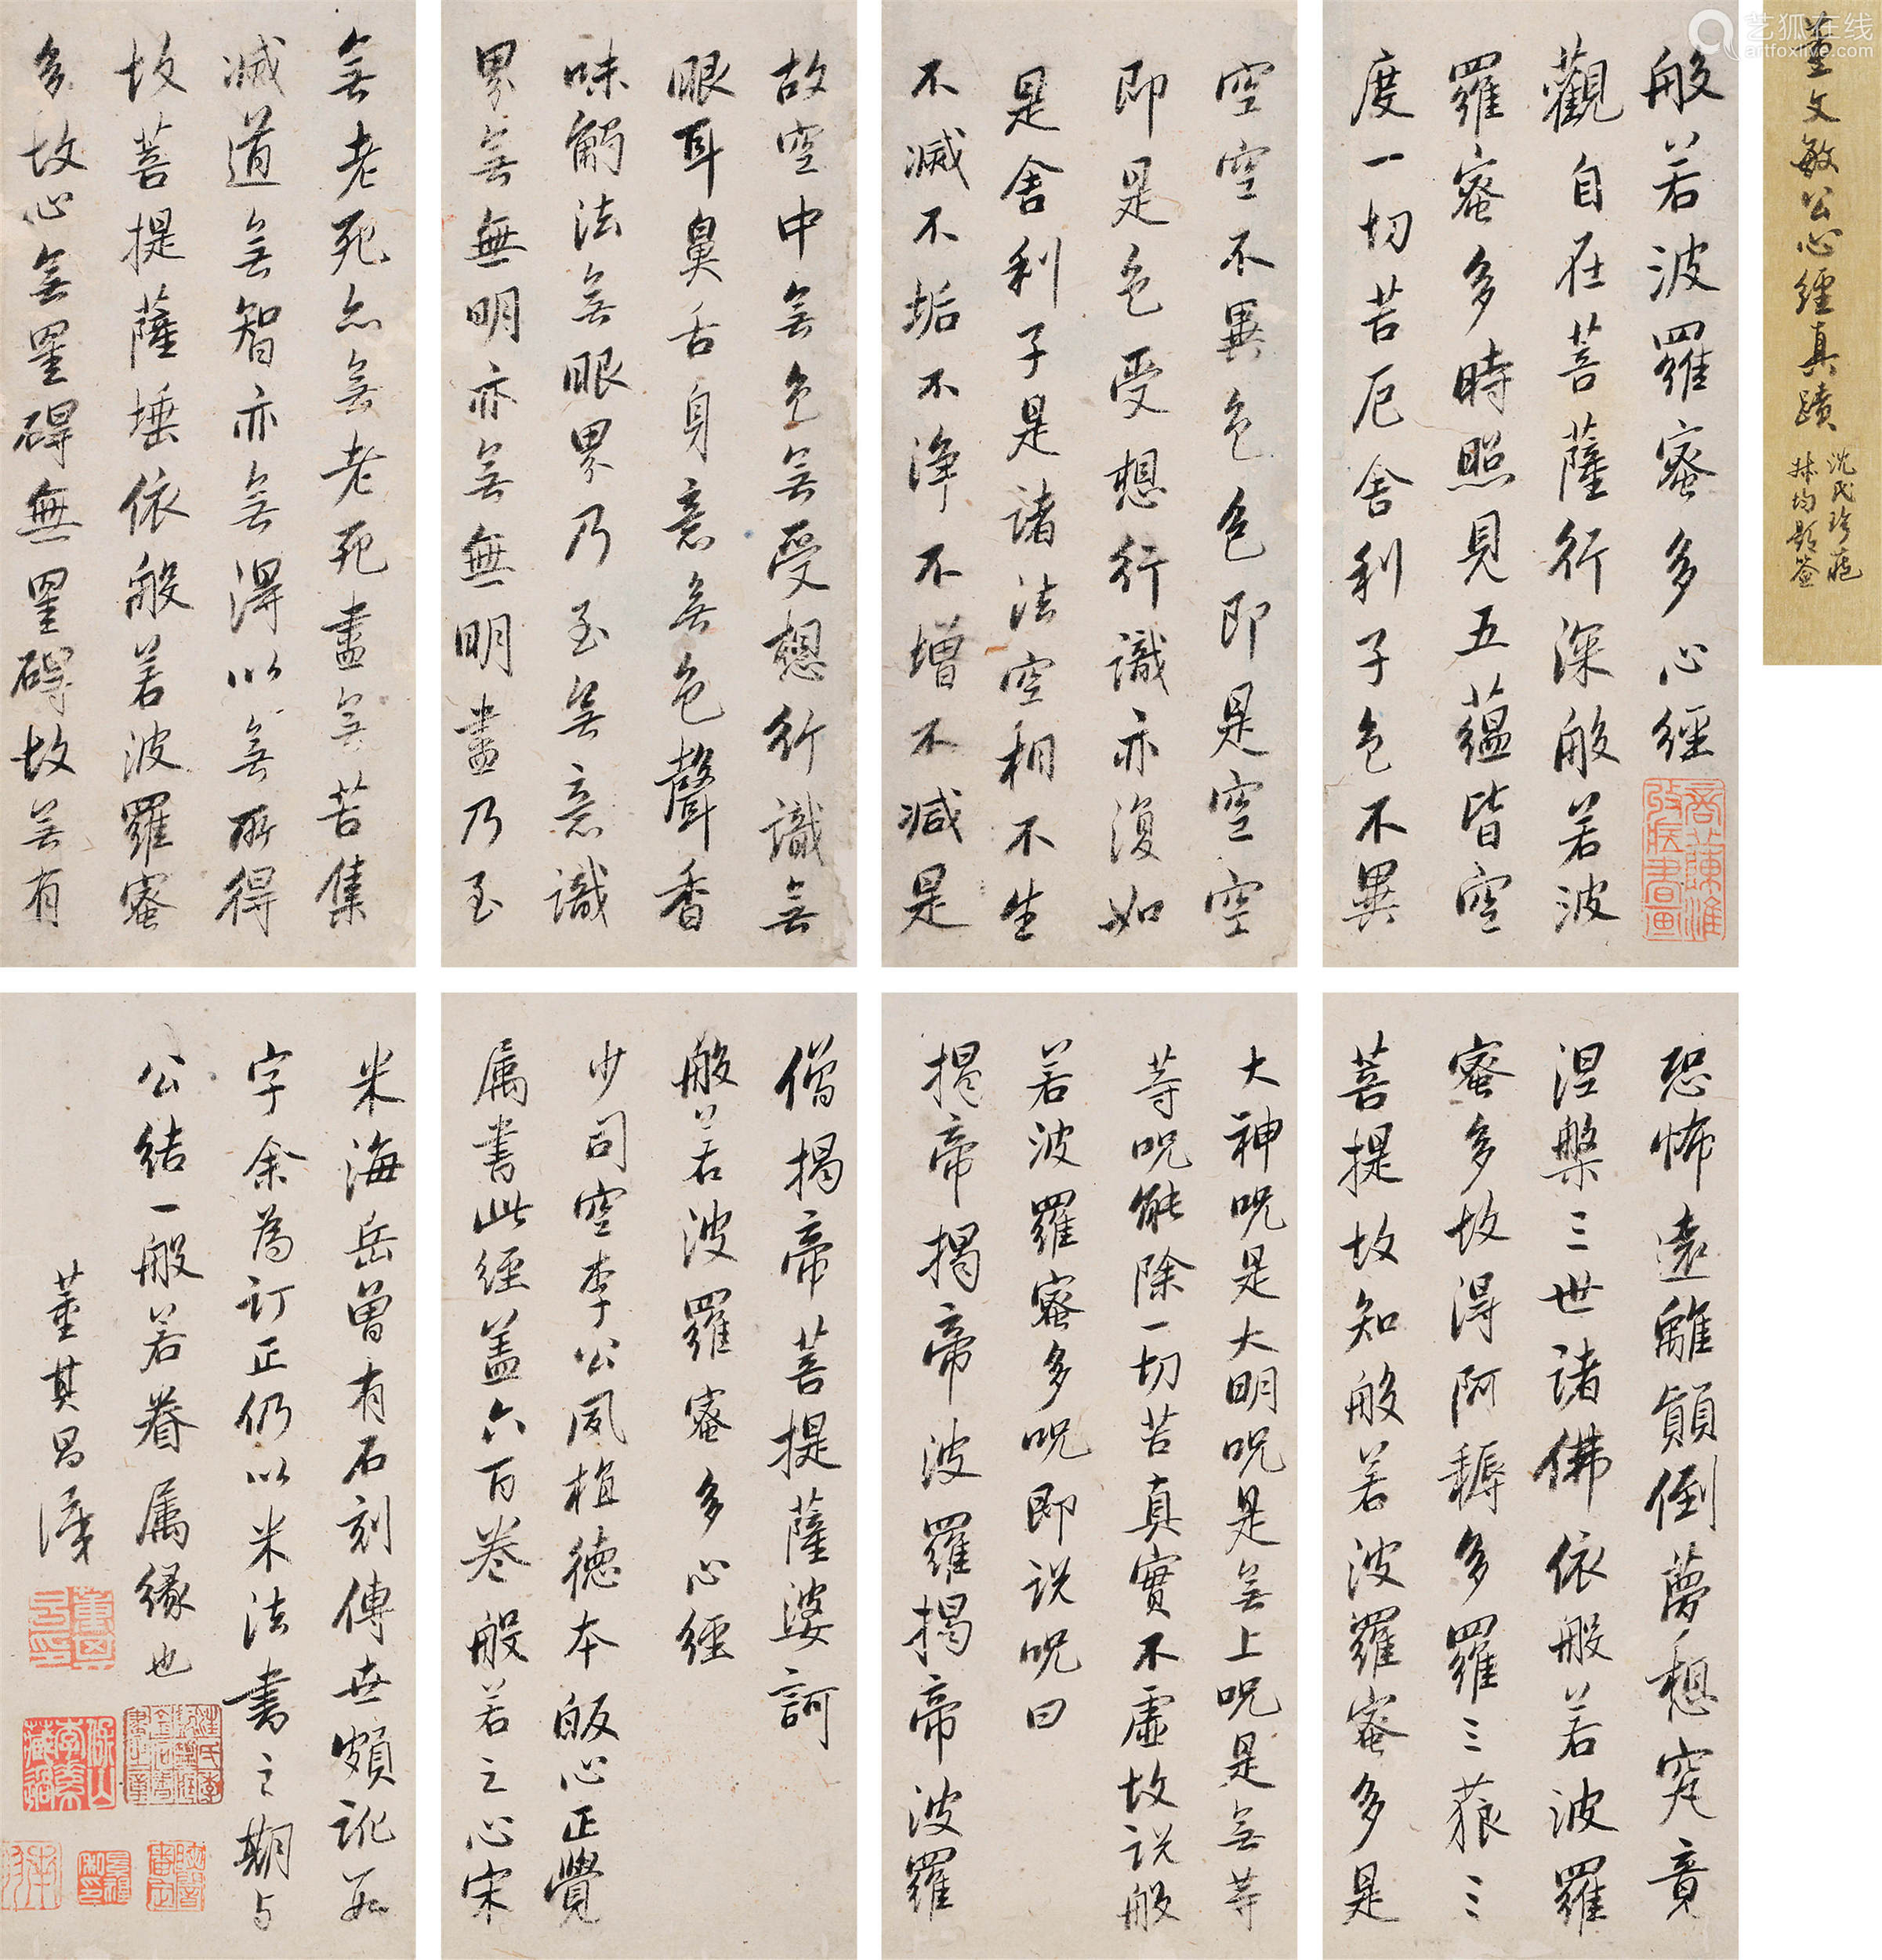 艺狐在线
artfoxlive.com
董文敏公心經真蹟
沈氏珍藏
林均題簽
般若波羅蜜多心經
觀自在菩薩行深般若波
羅蜜多時照見五蘊皆空
度一切苦厄舍利子色不異
空空不異色色即是空空
即是色受想行識亦復如
是舍利子是諸法空相不生
不滅不垢不淨不增不減是
故空中無色無受想行識無
眼耳鼻舌身意無色聲香
味觸法無眼界乃至無意識
界無無明亦無無明盡乃至
無老死亦無老死盡無苦集
滅道無智亦無得以無所得
故菩提薩埵依般若波羅蜜
多故心無罣礙無罣礙故無有
恐怖遠離顛倒夢想究竟
涅槃三世諸佛依般若波羅
蜜多故得阿耨多羅三藐三
菩提故知般若波羅蜜多是
大神呪是大明呪是無上呪是無等
等呪能除一切苦真實不虛故說般
若波羅蜜多呪即說呪曰
揭帝揭帝波羅揭帝波羅
僧揭帝菩提薩婆訶
般若波羅蜜多心經
少司空李公夙植德本皈心正覺
属書此經盖六百卷般若之心宋
米海岳曾有石刻傳世頗訛數
字余為訂正仍以米法書之期与
公結一般若眷属緣也
董其昌識